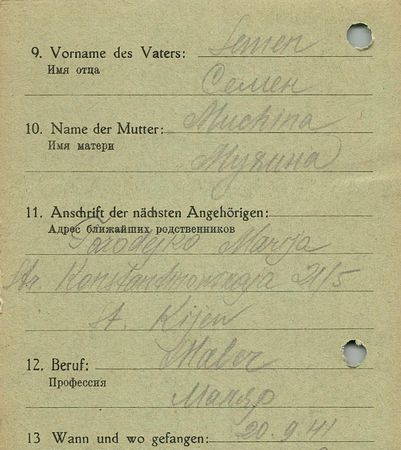 9. Vorname des Vaters: Semen
Имя отца Семен
10. Name der Mutter: Muchina
Имя матери Мухина
11. Anschrift der nächsten Angehörigen:
Адрес ближайших родственников
Marija
Str. Konstantinowskaja 21/5
St. Kijew
12. Beruf: Maler
Профессия Маляр
13 Wann und wo gefangen: 20.9.41